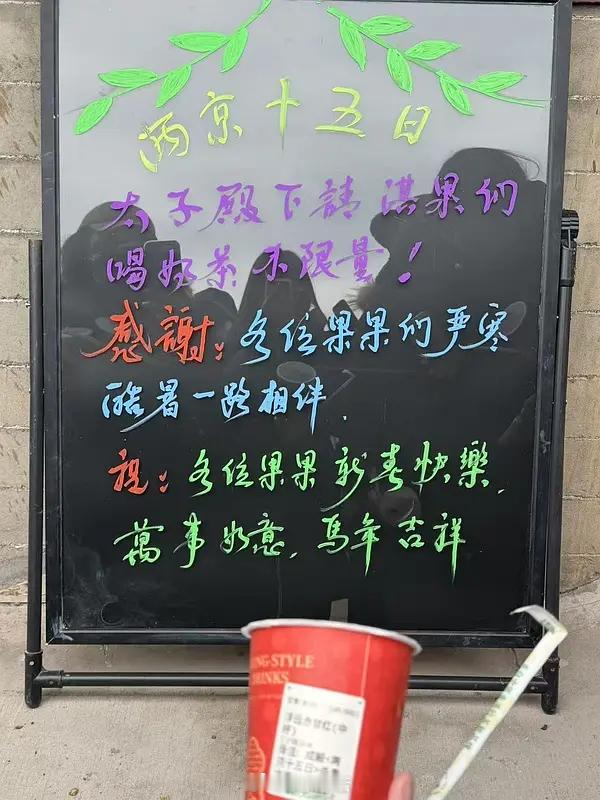 两京十五日
太子殿下請淇果们
喝奶茶不限量！
感謝：各位果果们严寒
酷暑一路相伴.
祝：各位果果新春快樂.
萬事如意.馬年吉祥
NG-STYLE
RINKS